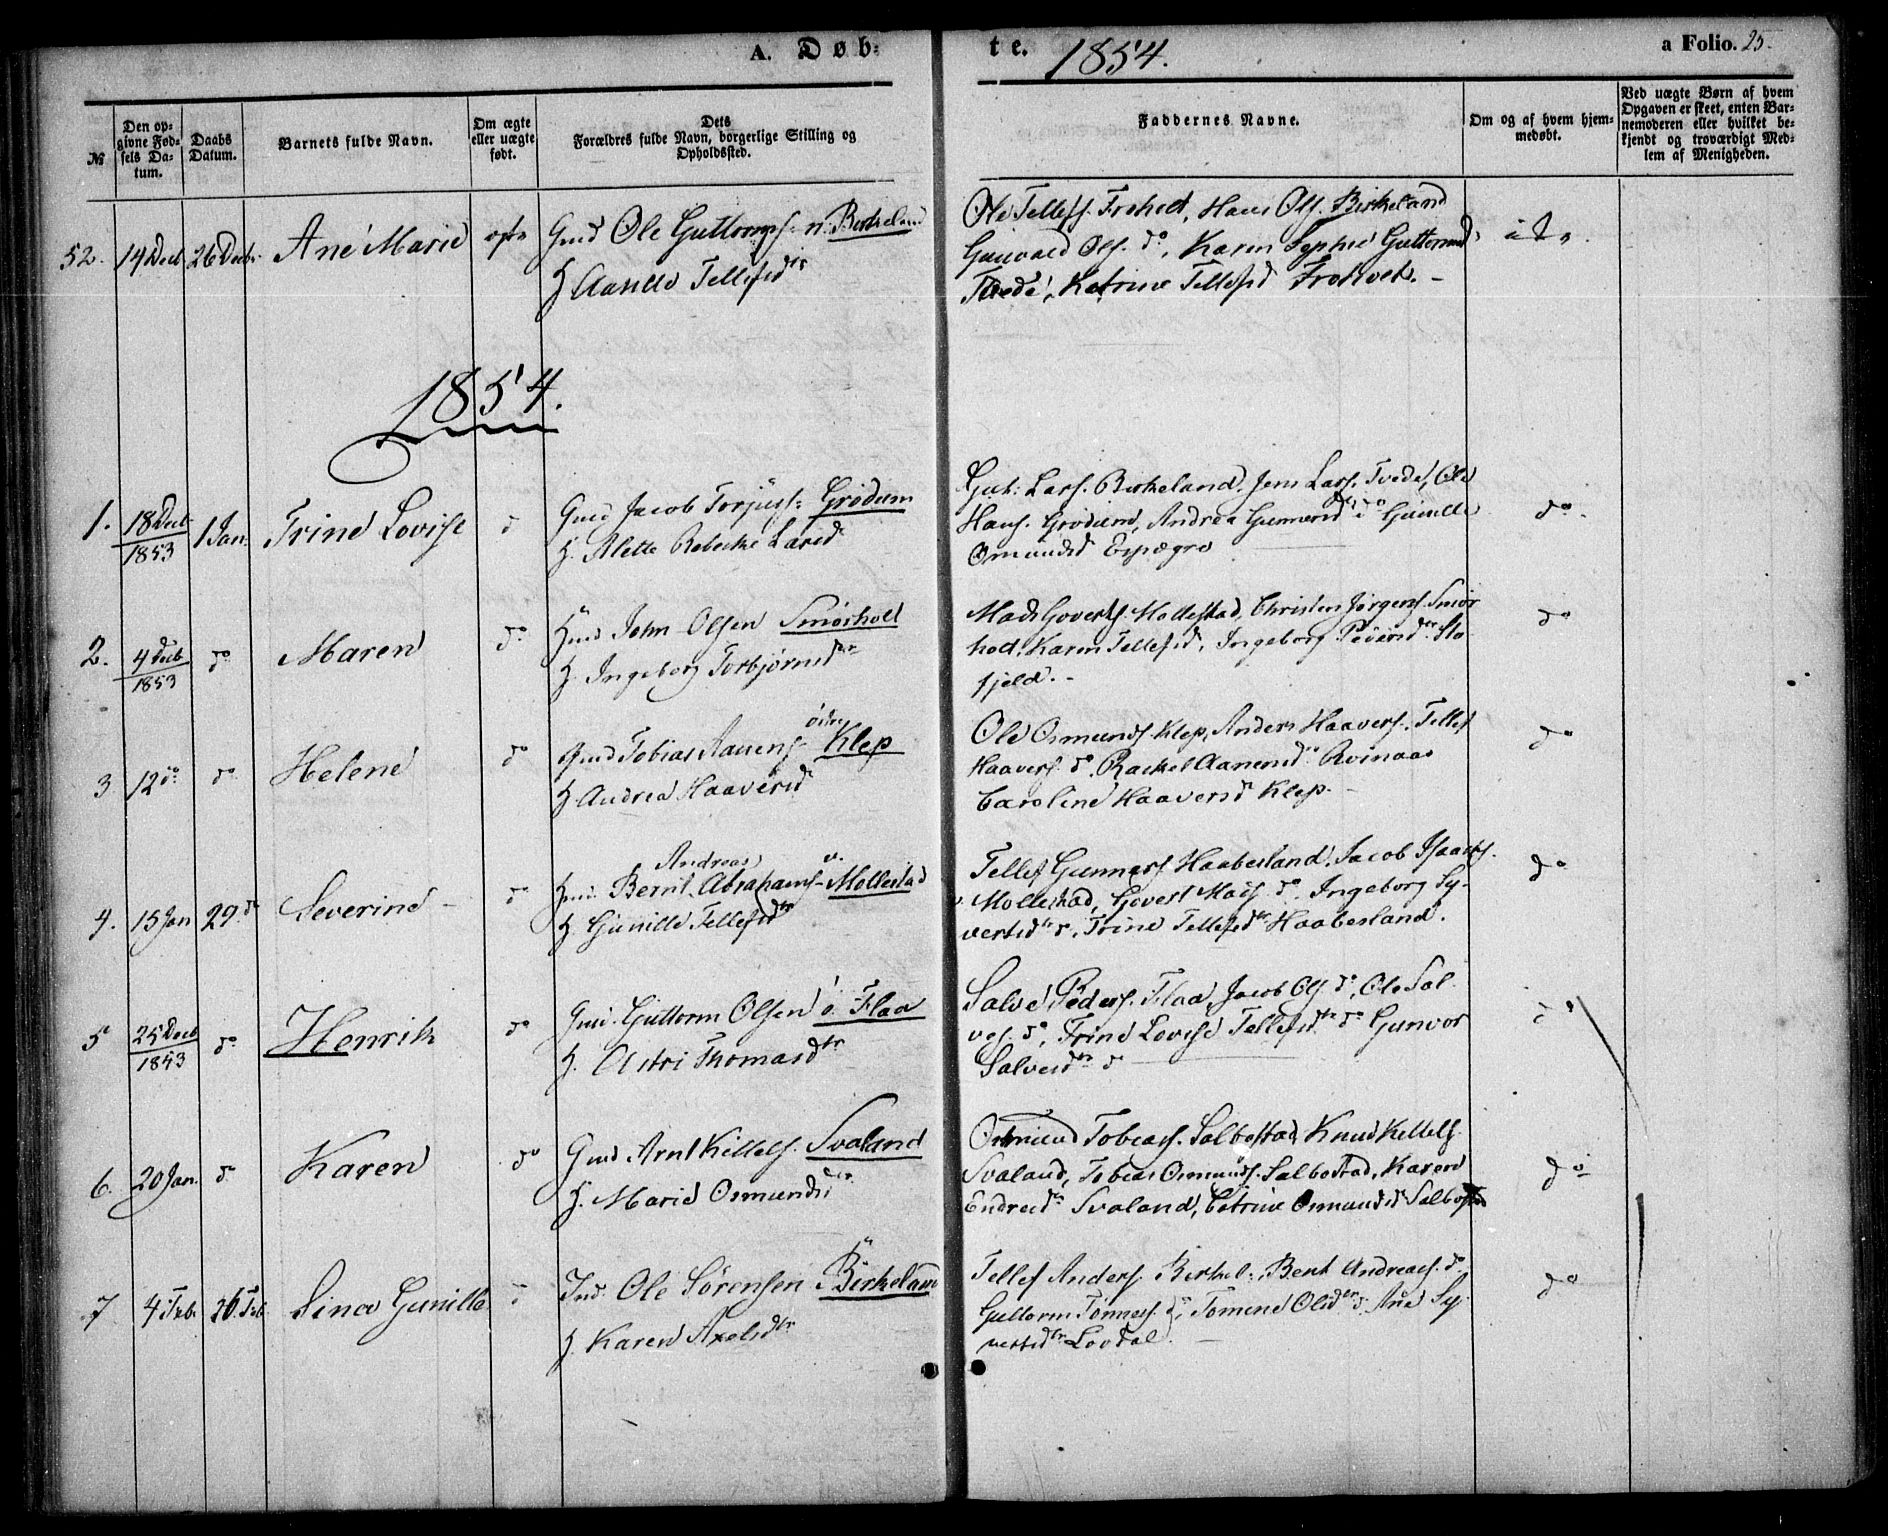 A. Døb-
te. 1854.
a Folio. 25.
№
Den op-
givne Fød-
sels Da-
tum.
Daabs
Datum.
Barnets fulde Navn.
Om ægte
eller uægte
født.
Dets
Forældres fulde Navn, borgerlige Stilling og
Opholdssted.
Faddernes Navne.
Om og af hvem hjem-
medøbt.
Ved uægte Børn af hvem
Opgaven er skeet, enten Bar-
nemoderen eller hvilket be-
kjendt og troværdigt Med-
lem af Menigheden.
52. 14 Decb 26 Decbr. Ane Marie ægte Gmd Ole Guttorms. n. Birkeland
H Aasille Tellefsdtr
Ole Tellefs. Hans Ols. Birkeland
Ols. do, Karen Sophie
Tvede, Katrine Tellefsd
1854.
1. 18 Decb 1853 1 Jan. Trine Lovise d Gmd Jacob Torjus: Grødum
H. Alette Rebekke Larsd
Gut: Lars. Birkeland. Jens Lars. Tvede, Ole
Hans. Grødum, Andrea Gunnarsd do Gunille
Omundsd Espægre
do.
2. 4 Decb 1853 do Maren do John Olsen Smørhold
H. Ingeborg Torbjørnsdtr
Mads Goverts. Mollestad, Christen Jørgens. Smør
hod, Karen Tellefsd, Ingeborg Sto
fjeld.
do
3 12 do do Helene do Gmd Tobias Aanens. østre Klep
H. Andrea Haaversd
Ole Osmunds. Klep, Anders Haavers. Tellef
Haavers. do. Rachel Aanensd
Caroline Haaversd Klep.
do
4. 15 Jan 29. do Severine do Andreas
Bernt. Abrahams. v. Mollestad
H Gunille Tellefsdtr
Tellef Gunnars. Haabesland, Jacob Isaacks.
Mollestad, Govert Mads. do. Ingeborg Sy-
vertsdtr d, Trine Tellefsdtr Haabesland.
do
5 25 Decb 1853 do Henrik do Gmd. Guttorm Olsen ø. Flaa
H. Astri Thomasdtr
Salve Peders. Flaa, Jacob Ols. do, Ole Sal
ves. do, Trine Lovise Tellefsdtr do Gunvor
Salvesdtr d
6. 20 Jan. d Karen do Gmd Arnt Killels. Svaland
H. Marie Osmundsdtr
Osmund Tobias. Salbostad, Knud Kettels.
Svaland, Tobias Osmunds. Salbostad, Karen
Endresdtr Svaland, Catrine Osmundsd Salbostad
do
7 4 Feb. 26. Feb. Sina Gunille d Ind. Ole Sørensen Birkeland
H. Karen Axelsdtr
Tellef Anders. Birkel: Bent Andreas. do
Guttorm Tønnes. d, Tomine Olsdtr d. Ane Sy-
vertsdtr Lovdal.
do